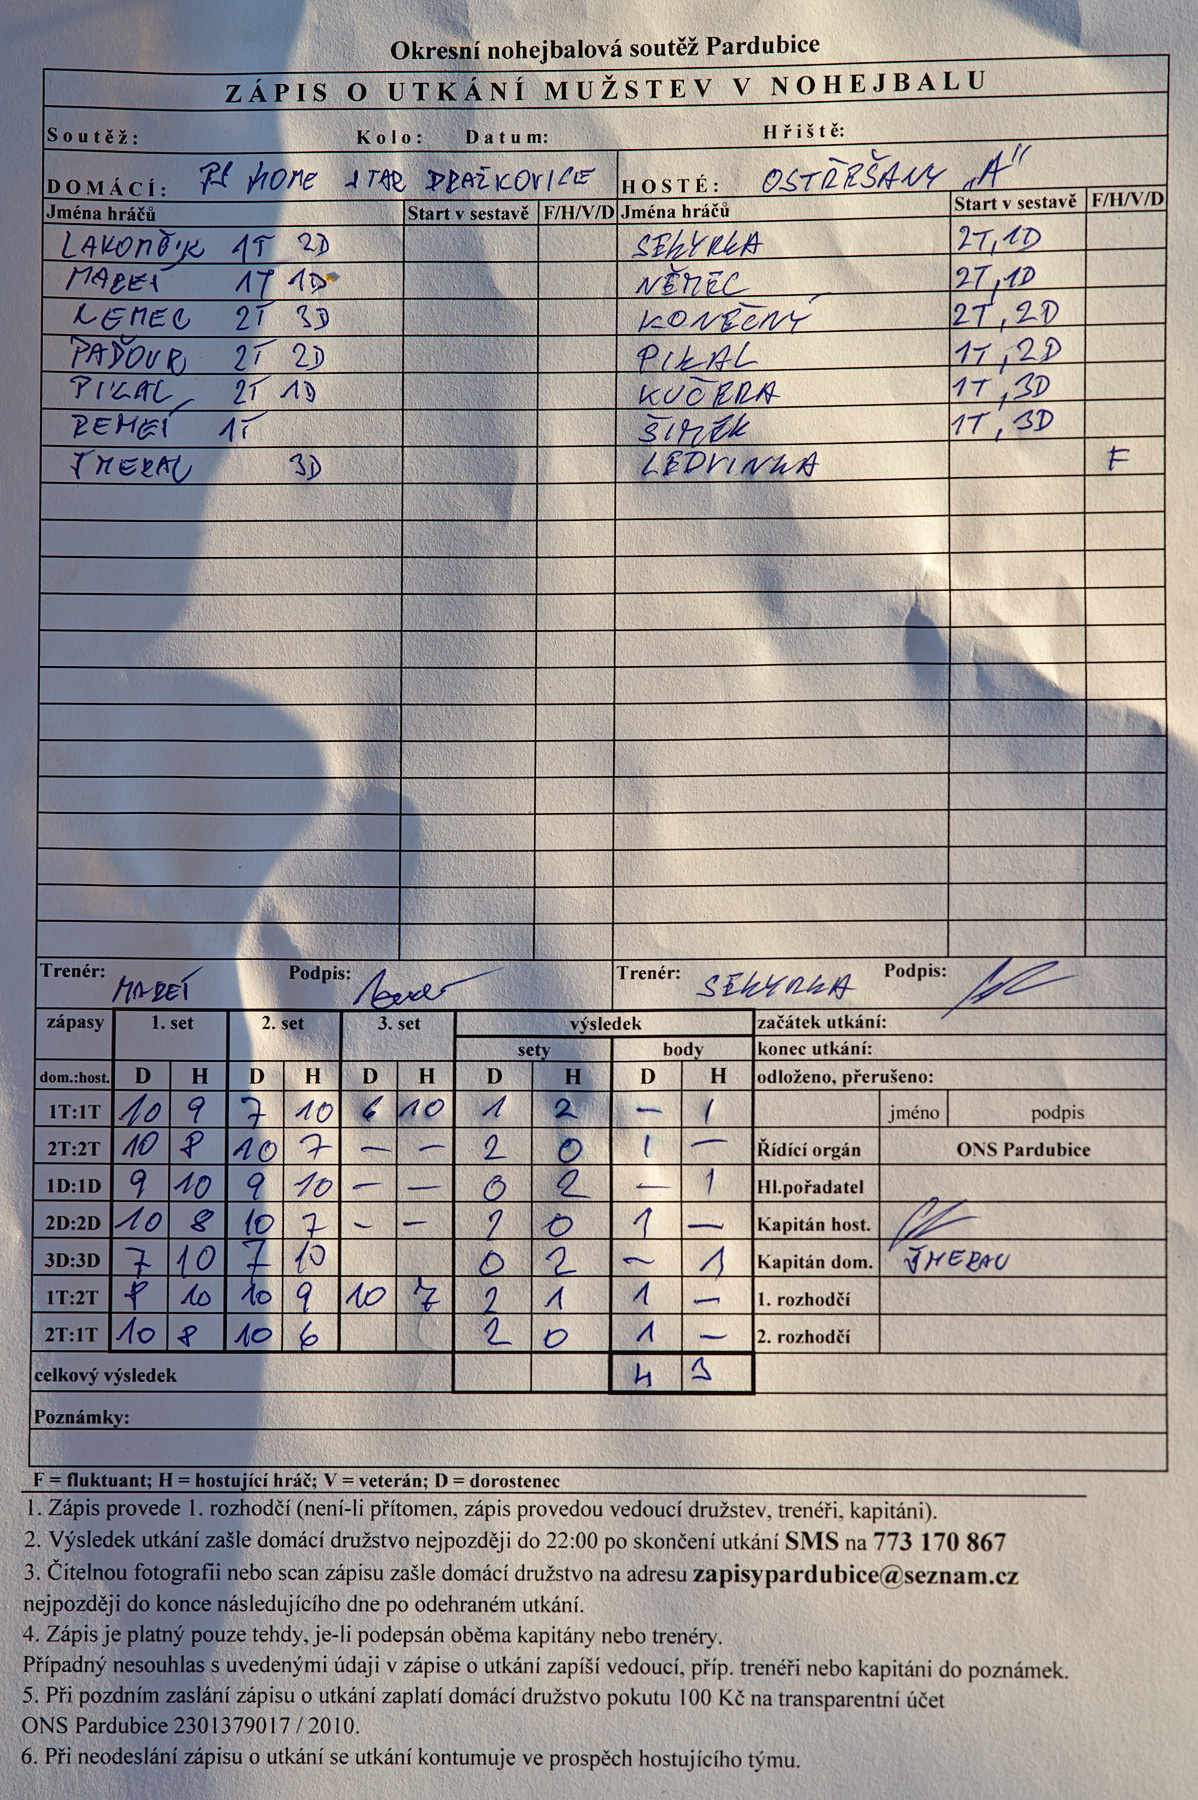 Okresní nohejbalová soutěž Pardubice
ZÁPIS O UTKÁNÍ MUŽSTEV V NOHEJBALU
Soutěž: Kolo: Datum: Hřiště:
DOMÁCÍ: HOME STAR DRAŽKOVICE HOSTÉ: OSTŘEŠANY „A"
Jména hráčů Start v sestavě F/H/V/D Jména hráčů Start v sestavě F/H/V/D
1T 2D SEKYRKA 2T,1D
MAREŠ 1T 1D NĚMEC 2T,1D
NEMEC 2T 3D KONEČNÝ 2T,2D
PAĎOUR 2T 2D PIKAL 1T,2D
PIKAL 2T 1D KUČERA 1T,3D
REMEŠ 1T ŠIMEK 1T,3D
ŠMERAL 3D LEDVINKA F
Trenér: MAREŠ Podpis: Trenér: SEKYRKA Podpis:
zápasy 1. set 2. set 3. set výsledek začátek utkání:
sety body konec utkání:
dom.:host. D H D H D H D H D H odloženo, přerušeno:
1T:1T 10 9 7 10 6 10 1 2 – 1 jméno podpis
2T:2T 10 8 10 7 – – 2 0 1 – Řídící orgán ONS Pardubice
1D:1D 9 10 9 10 – – 0 2 – 1 Hl.pořadatel
2D:2D 10 8 10 7 – – 2 0 1 – Kapitán host.
3D:3D 7 10 7 10 0 2 – 1 Kapitán dom. ŠMERAL
1T:2T 8 10 10 9 10 7 2 1 1 – 1. rozhodčí
2T:1T 10 8 10 6 2 0 1 – 2. rozhodčí
celkový výsledek 4 3
Poznámky:
F = fluktuant; H = hostující hráč; V = veterán; D = dorostenec
1. Zápis provede 1. rozhodčí (není-li přítomen, zápis provedou vedoucí družstev, trenéři, kapitáni).
2. Výsledek utkání zašle domácí družstvo nejpozději do 22:00 po skončení utkání SMS na 773 170 867
3. Čitelnou fotografii nebo scan zápisu zašle domácí družstvo na adresu zapisypardubice@seznam.cz
nejpozději do konce následujícího dne po odehraném utkání.
4. Zápis je platný pouze tehdy, je-li podepsán oběma kapitány nebo trenéry.
Případný nesouhlas s uvedenými údaji v zápise o utkání zapíší vedoucí, příp. trenéři nebo kapitáni do poznámek.
5. Při pozdním zaslání zápisu o utkání zaplatí domácí družstvo pokutu 100 Kč na transparentní účet
ONS Pardubice 2301379017 / 2010.
6. Při neodeslání zápisu o utkání se utkání kontumuje ve prospěch hostujícího týmu.